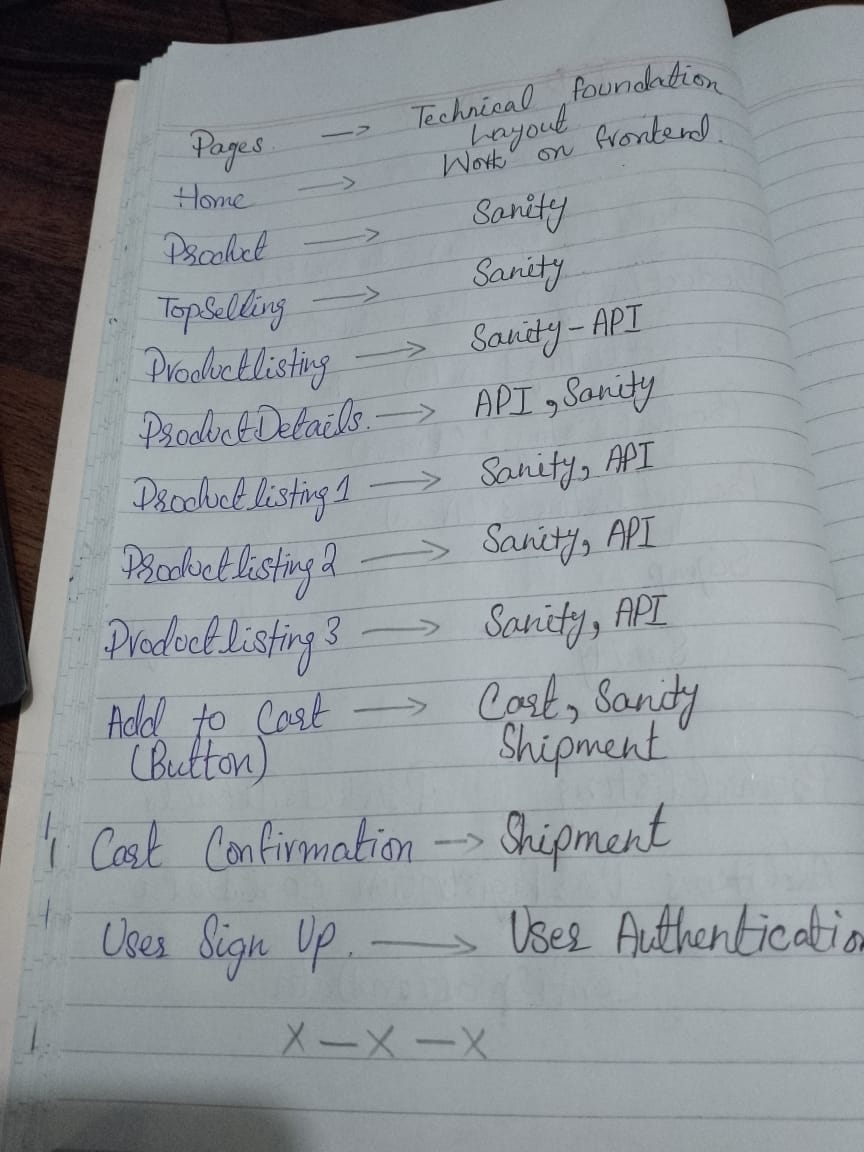 Pages → Technical foundation
Layout
Home → Work on frontend.
Product → Sanity
TopSelling → Sanity
Productlisting → Sanity-API
ProductDetails. → API, Sanity
Productlisting 1 → Sanity, API
Productlisting 2 → Sanity, API
Productlisting 3 → Sanity, API
Add to Cart → Cart, Sanity
(Button) Shipment
Cart Confirmation → Shipment
User Sign Up. → User Authenticatio
X - X - X